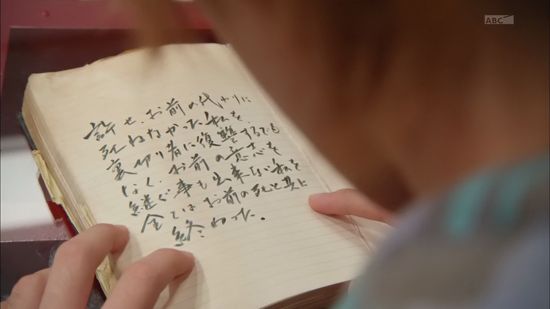 許せ、お前の代わりに
死ねなかった私を、
裏切り者に復讐をするでも
なく、お前の意志を
継ぐ事も出来ない私を
全てはお前の死と共に
終わった。
ABC